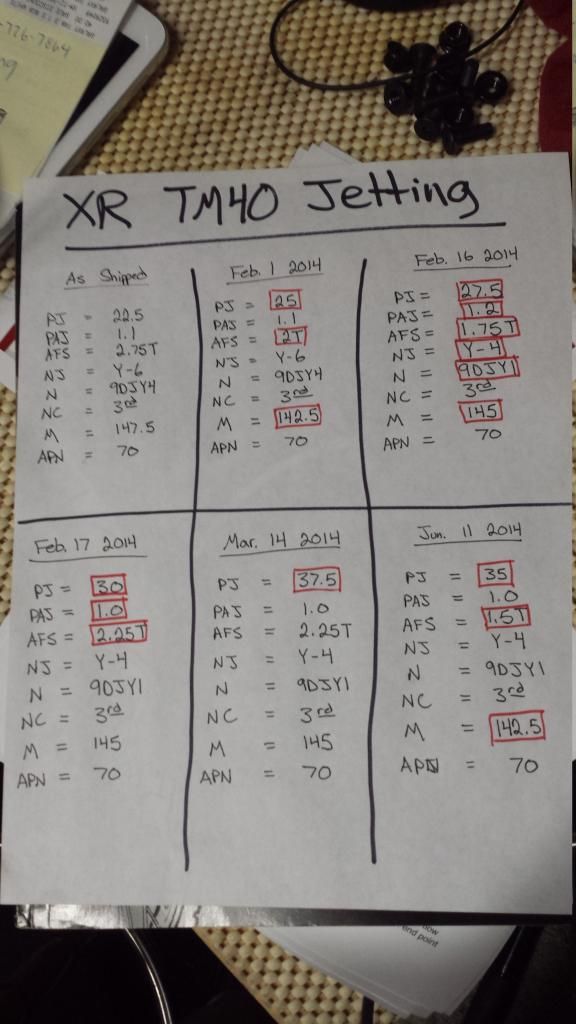 -726-7864
XR TM40 Jetting
As Shipped
PJ = 22.5
PAJ = 1.1
AFS = 2.75T
NJ = Y-6
N = 9DJY4
NC = 3rd
M = 147.5
APN = 70
Feb. 1 2014
PJ = 25
PAJ = 1.1
AFS = 2T
NJ = Y-6
N = 9DJY4
NC = 3rd
M = 142.5
APN = 70
Feb. 16 2014
PJ = 27.5
PAJ = 1.2
AFS = 1.75T
NJ = Y-4
N = 9DJY1
NC = 3rd
M = 145
APN = 70
Feb. 17 2014
PJ = 30
PAJ = 1.0
AFS = 2.25T
NJ = Y-4
N = 9DJY1
NC = 3rd
M = 145
APN = 70
Mar. 14 2014
PJ = 37.5
PAJ = 1.0
AFS = 2.25T
NJ = Y-4
N = 9DJY1
NC = 3rd
M = 145
APN = 70
Jun. 11 2014
PJ = 35
PAJ = 1.0
AFS = 1.5T
NJ = Y-4
N = 9DJY1
NC = 3rd
M = 142.5
APN = 70
end point